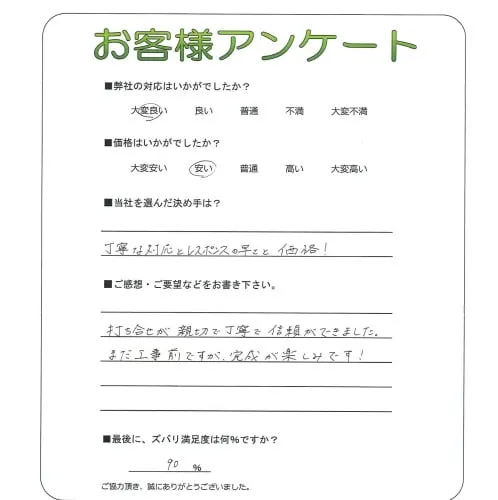 お客様アンケート
■弊社の対応はいかがでしたか？
大変良い 良い 普通 不満 大変不満
■価格はいかがでしたか？
大変安い 安い 普通 高い 大変高い
■当社を選んだ決め手は？
丁寧な対応とレスポンスの早さと価格！
■ご感想・ご要望などをお書き下さい。
打ち合せが親切で丁寧で信頼ができました。
まだ工事前ですが、完成が楽しみです！
■最後に、ズバリ満足度は何%ですか？
90 %
ご協力頂き、誠にありがとうございました。